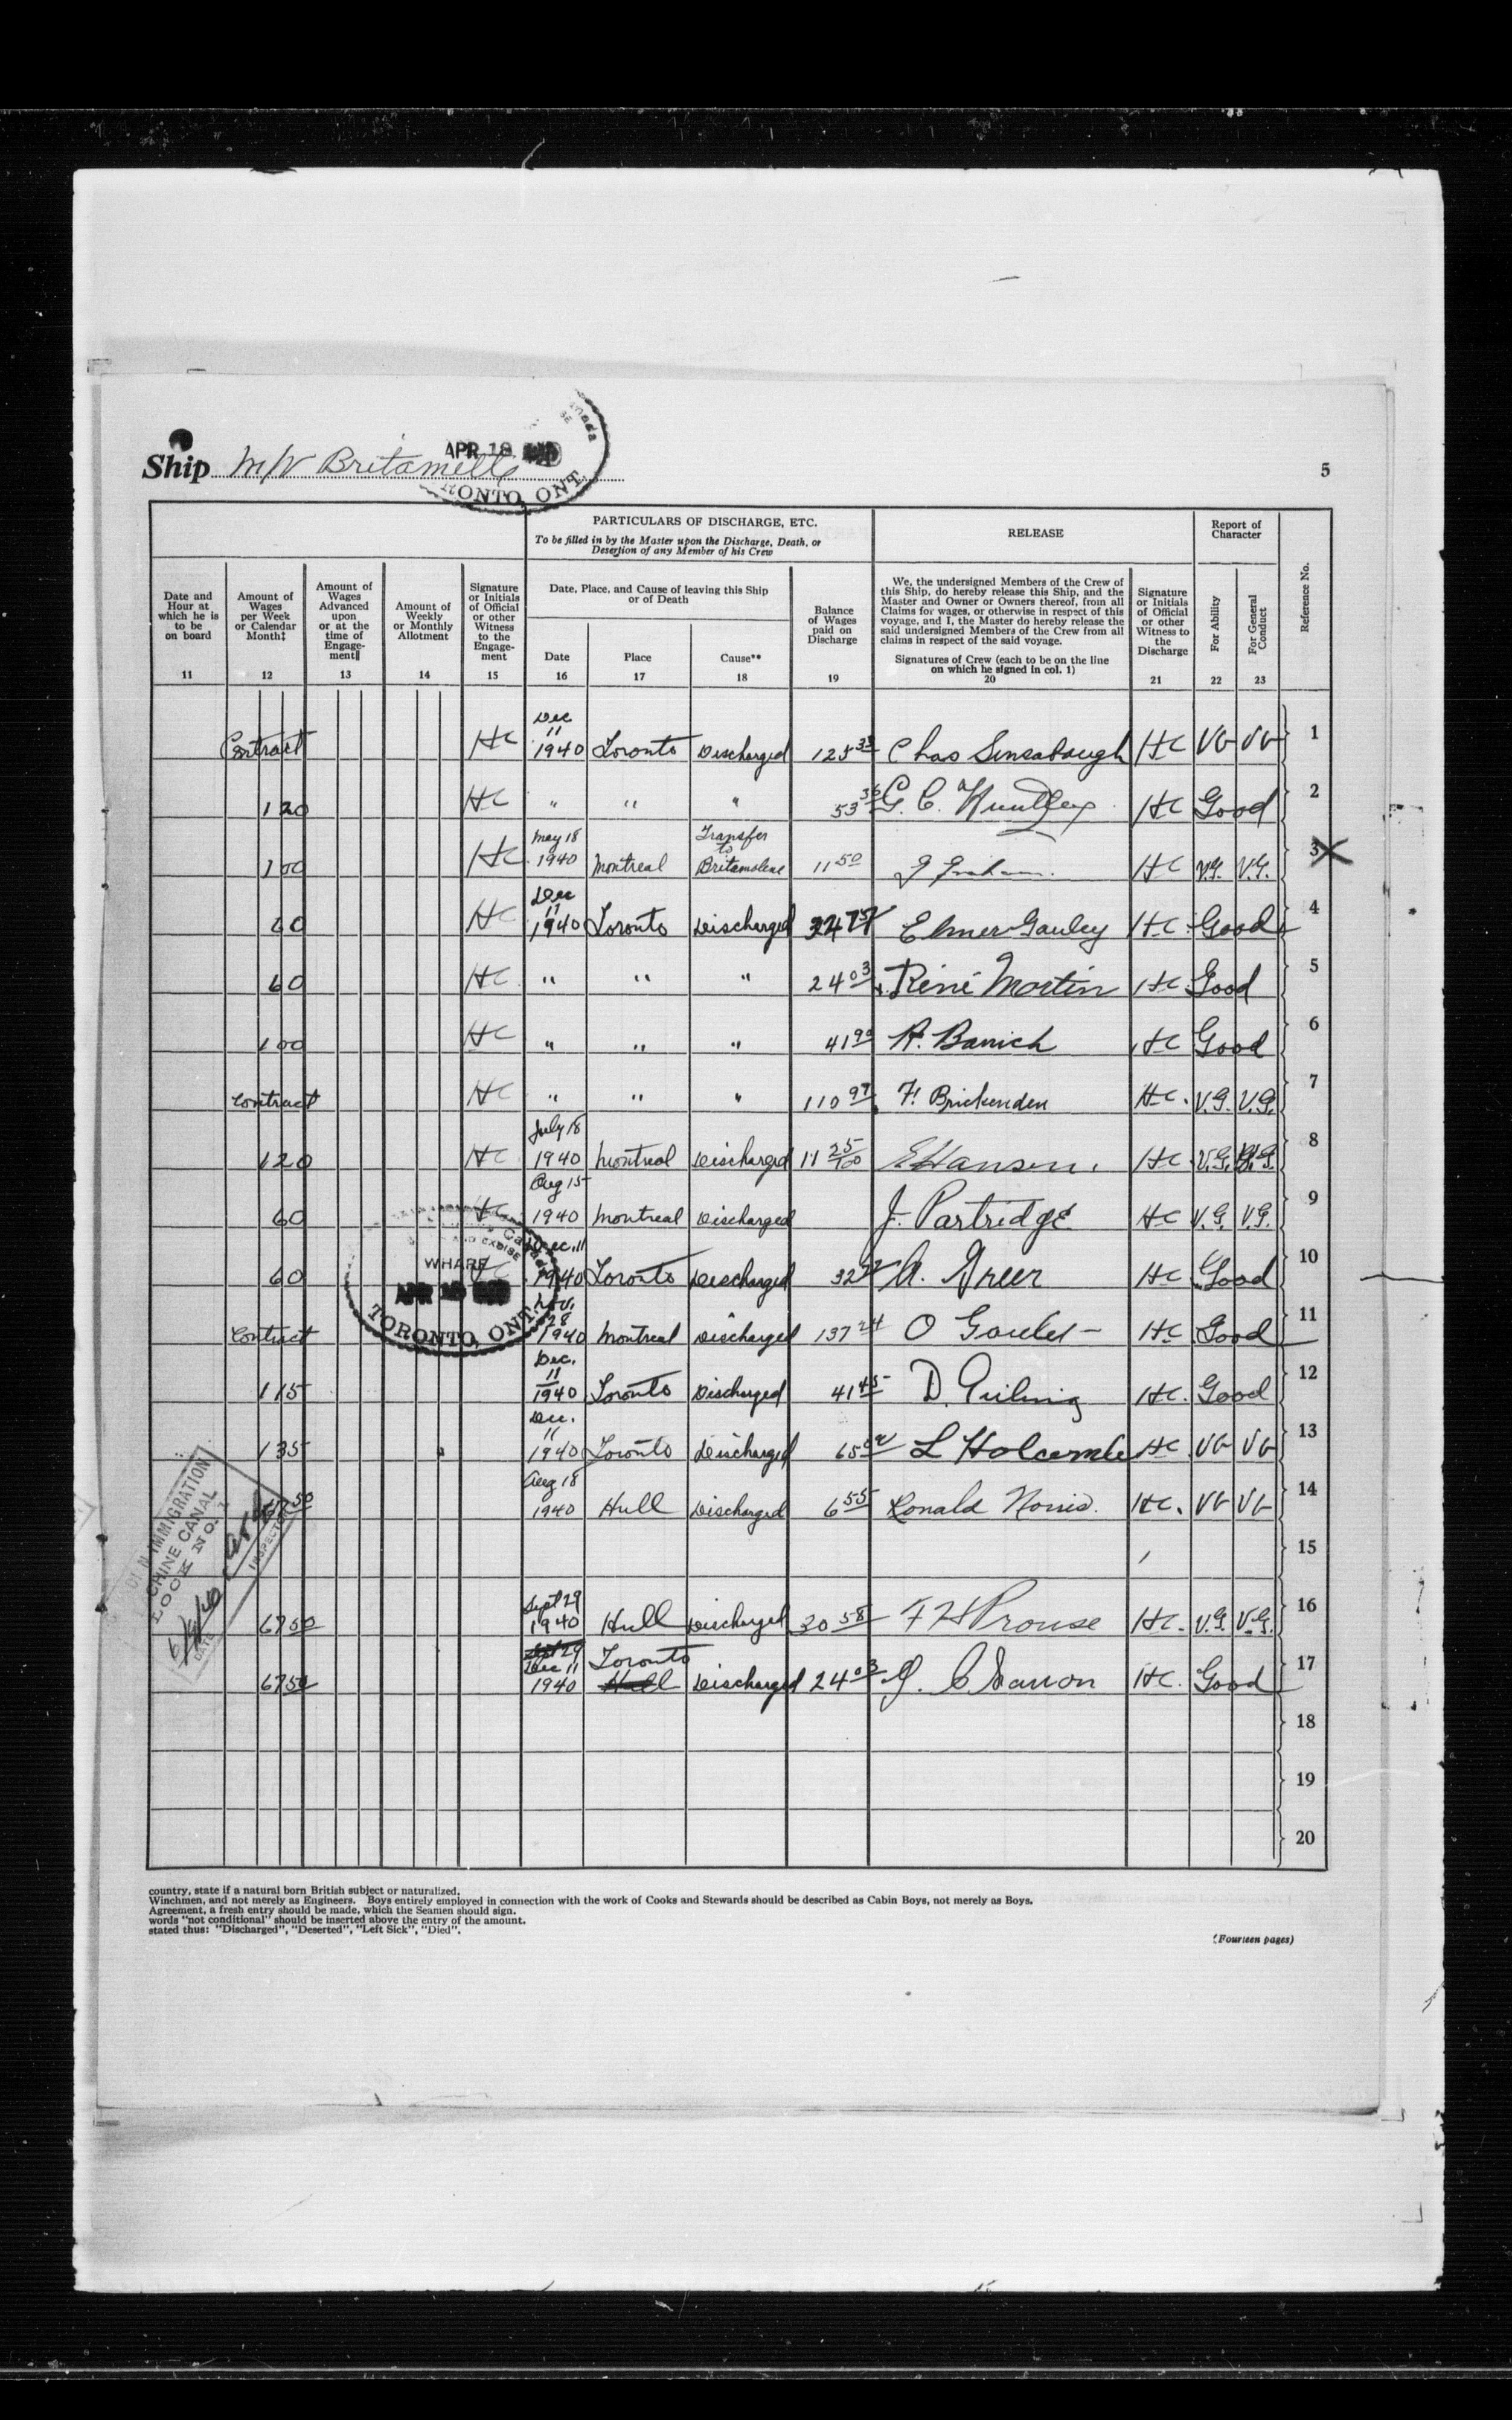 APR 18
RONTO, ONT.
Ship M/V Britamette
5
PARTICULARS OF DISCHARGE, ETC.
To be filled in by the Master upon the Discharge, Death, or
Desertion of any Member of his Crew
RELEASE
Report of
Character
Date and
Hour at
which he is
to be
on board
11
Amount of
Wages
per Week
or Calendar
Month‡
12
Amount of
Wages
Advanced
upon
or at the
time of
Engage-
ment‖
13
Amount of
Weekly
or Monthly
Allotment
14
Signature
or Initials
of Official
or other
Witness
to the
Engage-
ment
15
Date, Place, and Cause of leaving this Ship
or of Death
Date
16
Place
17
Cause**
18
Balance
of Wages
paid on
Discharge
19
We, the undersigned Members of the Crew of
this Ship, do hereby release this Ship, and the
Master and Owner or Owners thereof, from all
Claims for wages, or otherwise in respect of this
voyage, and I, the Master do hereby release the
said undersigned Members of the Crew from all
claims in respect of the said voyage.
Signatures of Crew (each to be on the line
on which he signed in col. 1)
20
Signature
or Initials
of Official
or other
Witness to
the
Discharge
21
For Ability
22
For General
Conduct
23
Reference No.
Contract HC Dec 11 1940 Toronto Discharged 125 Chas Sensabaugh HC VG VG 1
120 HC " " " 53 36 G. C. Huntley HC Good 2
100 HC May 18 1940 Montreal Transfer to Britamolene 11 50 J Graham HC V.G. V.G. 3 X
60 HC Dec 11 1940 Toronto Discharged Elmer Gauley HC Good 4
60 HC " " " 24 03 René Martin HC Good 5
100 HC " " " 41 90 Banich HC Good 6
Contract HC " " " 110 97 F. Brickenden HC. V.G. V.G. 7
120 HC July 18 1940 Montreal Discharged 11 25/100 E Hansen. HC V.G. V.G. 8
60 HC Aug 15 1940 Montreal Discharged J. Partridge HC V.G. V.G. 9
60 HC Dec. 11 1940 Toronto Discharged 32 A. Greer HC Good 10
WHARF
TORONTO, ONT.
Contract Nov. 28 1940 Montreal Discharged 137 24 O HC Good 11
115 Dec. 11 1940 Toronto Discharged 41 45 D. HC. Good 12
135 Dec. 11 1940 Toronto Discharged 65 L Holcombe HC VG VG 13
67 50 Aug 18 1940 Hull Discharged 6 55 Ronald Norris. HC. VG VG 14
IMMIGRATION
CHINE CANAL
LOCK NO. 1
INSPECTOR
DATE
15
67 50 Sept 29 1940 Hull Discharged 30 58 F H Prouse HC. V.G. V.G. 16
67 50 Sept 29 Dec 11 1940 Toronto Hull Discharged 24 03 J. HC. Good 17
18
19
20
country, state if a natural born British subject or naturalized.
Winchmen, and not merely as Engineers. Boys entirely employed in connection with the work of Cooks and Stewards should be described as Cabin Boys, not merely as Boys.
Agreement, a fresh entry should be made, which the Seamen should sign.
words "not conditional" should be inserted above the entry of the amount.
stated thus: "Discharged", "Deserted", "Left Sick", "Died".
(Fourteen pages)